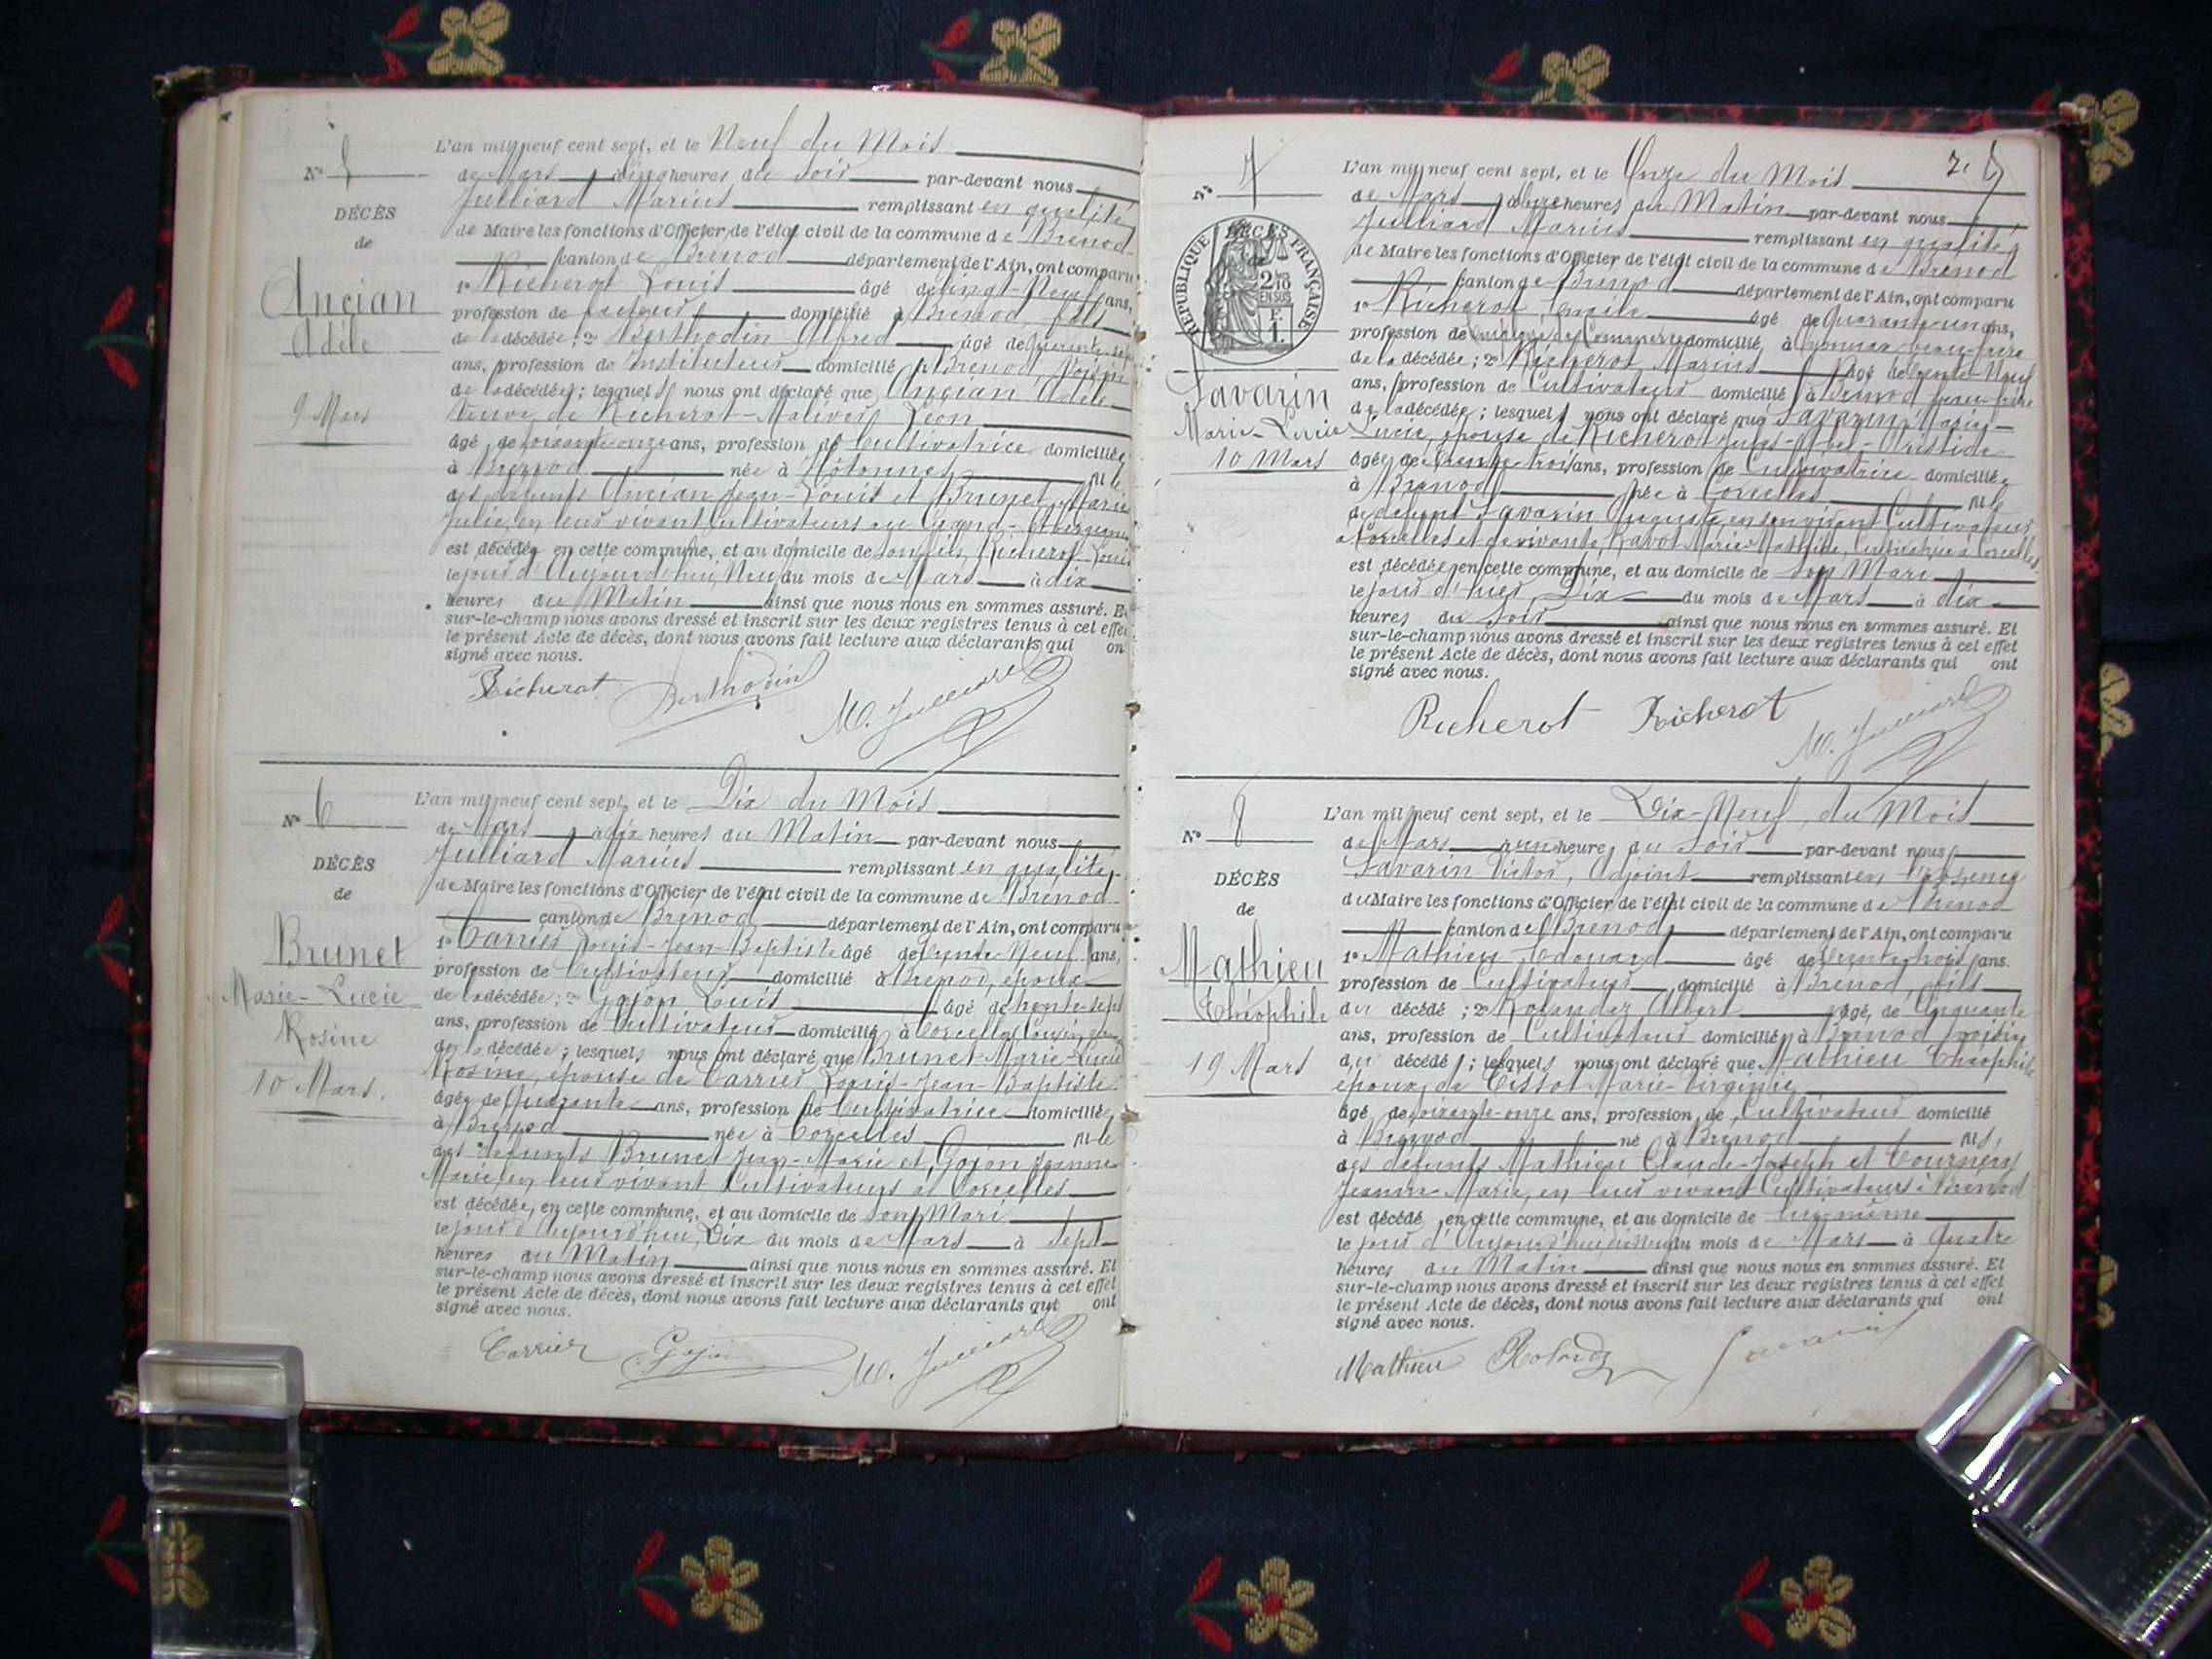 L'an mil neuf cent sept, et le Neuf du Mois
N° 5
de Mars à cinq heures du Soir par-devant nous
DÉCÈS
Julliard Marius remplissant en qualité
de
de Maire les fonctions d'Officier de l'état civil de la commune de Brenod
canton de Brenod département de l'Ain, ont comparu
Ancian
Adèle
9 Mars
1° Richerot Louis âgé de vingt-Neuf ans,
profession de facteur domicilié à Brenod, fils
de la décédée; 2° Berthodin Alfred âgé de
ans, profession de Instituteur domicilié à Brenod, Voisin
de la décédée; lesquels nous ont déclaré que Ancian Adèle
Veuve de Richerot-Malivers Léon
âgée de soixante-onze ans, profession de Cultivatrice domiciliée
à Brenod née à Hotonnes fille
des défunts Ancian Jean-Louis et Brunet Marie
Julie, en leur vivant Cultivateurs au Grand-Abergement
est décédée en cette commune, et au domicile de son fils, Richerot Louis
le jour d'Aujourd'hui Neuf du mois de Mars à dix
heures du Matin ainsi que nous nous en sommes assuré. E
sur-le-champ nous avons dressé et inscrit sur les deux registres tenus à cet effet
le présent Acte de décès, dont nous avons fait lecture aux déclarants qui on
signé avec nous.
Richerot Berthodin M. Julliard
L'an mil neuf cent sept, et le Dix du Mois
N° 6
de Mars à dix heures du Matin par-devant nous
DÉCÈS
Julliard Marius remplissant en qualité
de
de Maire les fonctions d'Officier de l'état civil de la commune de Brénod
canton de Brenod département de l'Ain, ont comparu
Brunet
Marie-Lucie
Rosine
10 Mars.
1° Carrier Louis-Jean-Baptiste âgé de trente Neuf ans,
profession de Cultivateur domicilié à Brenod, époux
de la décédée; 2° Gojon Louis âgé de trente-sept
ans, profession de Cultivateur domicilié à Corcelles Cousin
de la décédée; lesquels nous ont déclaré que Brunet Marie-Lucie
Rosine, épouse de Carrier Louis-Jean-Baptiste
âgée de Quarante ans, profession de Cultivatrice domiciliée
à Brenod née à Corcelles fille
des défunts Brunet Jean-Marie et Gojon Jeanne
Marie, en leur vivant Cultivateurs à Corcelles
est décédée, en cette commune, et au domicile de son Mari
le jour d'Aujourd'hui, Dix du mois de Mars à Sept
heures du Matin ainsi que nous nous en sommes assuré. Et
sur-le-champ nous avons dressé et inscrit sur les deux registres tenus à cet effet
le présent Acte de décès, dont nous avons fait lecture aux déclarants qui ont
signé avec nous.
Carrier Gojon M. Julliard
L'an mil neuf cent sept, et le Onze du Mois
N° 7
de Mars à onze heures du Matin par-devant nous
RÉPUBLIQUE FRANÇAISE
DÉCÈS
de
2/10
EN SUS
F.
1.
Julliard Marius remplissant en qualité
de Maire les fonctions d'Officier de l'état civil de la commune de Brenod
canton de Brenod département de l'Ain, ont comparu
1° Richerot Emile âgé de Quarante un ans,
profession de Employé de Commerce domicilié à Oyonnax beau-frère
de la décédée; 2° Richerot Marius âgé de trente-Neuf
ans, profession de Cultivateur domicilié à Brenod beau-frère
de la décédée; lesquels nous ont déclaré que Savarin Marie-
Savarin
Marie-Lucie
10 Mars
Lucie, épouse de Richerot Aristide
âgée de trente-trois ans, profession de Cultivatrice domiciliée
à Brenod née à Corcelles fille
de défunt Savarin Auguste, en son vivant Cultivateur
à Corcelles et de vivante, Ravot Marie-Mathilde, Cultivatrice à Corcelles
est décédée en cette commune, et au domicile de Son Mari
le jour d'hier, Dix du mois de Mars à dix
heures du Soir ainsi que nous nous en sommes assuré. Et
sur-le-champ nous avons dressé et inscrit sur les deux registres tenus à cet effet
le présent Acte de décès, dont nous avons fait lecture aux déclarants qui ont
signé avec nous.
Richerot Richerot M. Julliard
L'an mil neuf cent sept, et le Dix-Neuf du Mois
N° 8
de Mars à une heure du Soir par-devant nous
DÉCÈS
Savarin Victor, Adjoint remplissant en absence
de
du Maire les fonctions d'Officier de l'état civil de la commune de Brenod
canton de Brenod département de l'Ain, ont comparu
Mathieu
Théophile
19 Mars
1° Mathieu Edouard âgé de trente-trois ans.
profession de Cultivateur domicilié à Brenod, fils
du décédé; 2° Rolandez Albert âgé de Cinquante
ans, profession de Cultivateur domicilié à Brenod voisin
du décédé; lesquels nous ont déclaré que Mathieu Théophile
époux de Tissot Marie-Virginie
âgé de soixante-onze ans, profession de Cultivateur domicilié
à Brenod né à Brenod fils
des défunts Mathieu Claude-Joseph et
Jeanne-Marie, en leur vivant Cultivateurs à Brenod
est décédé en cette commune, et au domicile de lui-même
le jour d'Aujourd'hui dix-Neuf du mois de Mars à Quatre
heures du Matin ainsi que nous nous en sommes assuré. Et
sur-le-champ nous avons dressé et inscrit sur les deux registres tenus à cet effet
le présent Acte de décès, dont nous avons fait lecture aux déclarants qui ont
signé avec nous.
Mathieu Savarin